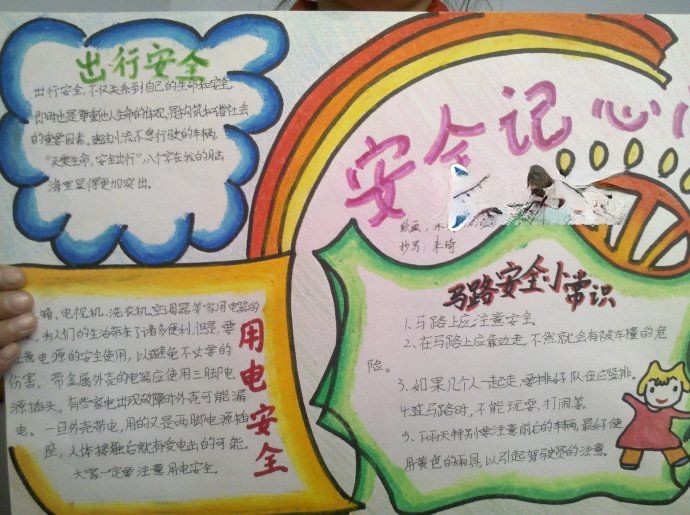 出行安全
出行安全,不仅关系到自己的生命和安全,
即时也是尊重他人生命的体现,是构筑和谐社会
的重要因素。川流不息行驶的车辆,
"关爱生命,安全出行"八个字在我的脑
海里显得更加突出。
安全记心
绘画:朱
抄写:朱琦
用电安全
电视机、洗衣机空调器等家用电器的
为人们的生活带来了诸多便利,但是,要
注意电源的安全使用,以避免不必要的
伤害。带金属外壳的电器应使用三脚电
源插头。有些家电出现故障时外壳可能漏
电。一旦外壳带电,用的又是两脚电源插
座,人体接触后就有受电击的可能。
大家一定要注意用电安全。
马路安全小常识
1、马路上应注意安全
2、在马路上应靠边走,不然就会有被车撞的危
险。
3、如果几个人一起走,要排好队伍应竖排。
4、过马路时,不能玩耍、打闹等。
5、下雨天特别要注意前后的车辆,最好使
用黄色的雨具,以引起驾驶员的注意。